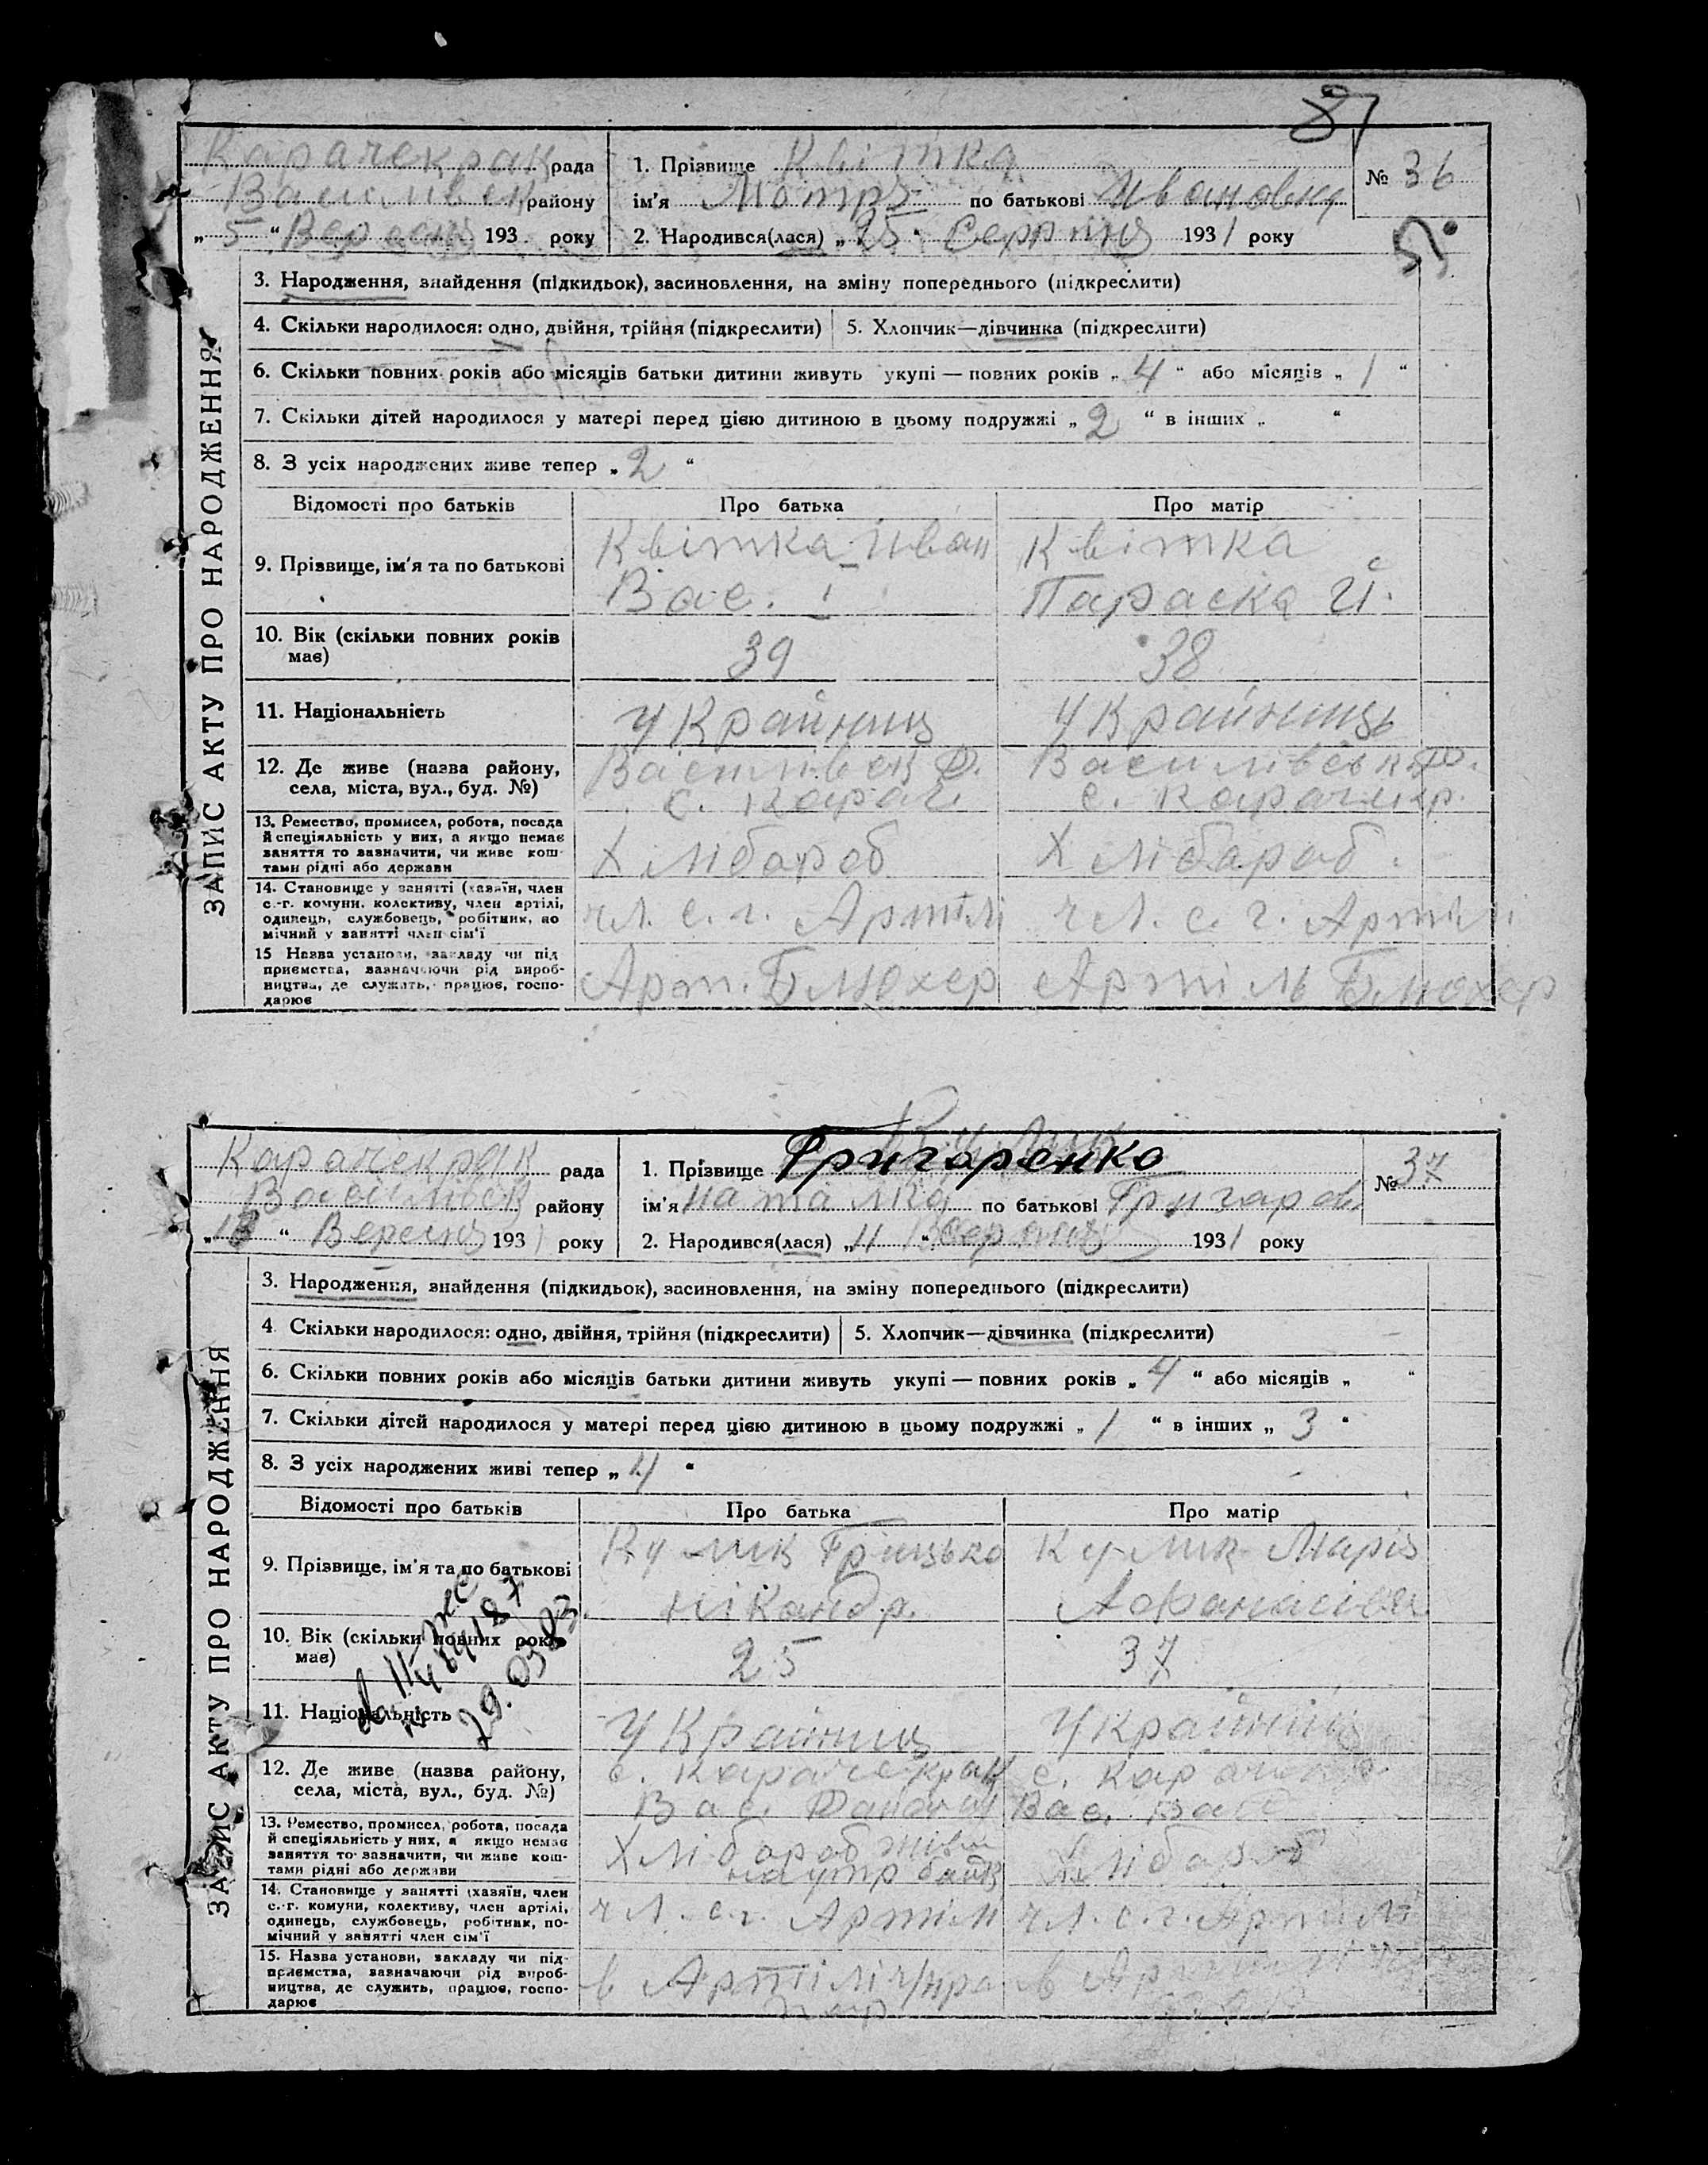 87
Карачекрак рада
Василівськ району
„ 5 “ Вересня 193 року
1. Прізвище Квітка
ім'я Мотря по батькові Ивановну
2. Народився(лася) „ 25 “ Серпня 1931 року
№ 36
ЗАПИС АКТУ ПРО НАРОДЖЕННЯ
3. Народження, знайдення (підкидьок), засиновлення, на зміну попереднього (підкреслити)
4. Скільки народилося: одно, двійня, трійня (підкреслити) 5. Хлопчик—дівчинка (підкреслити)
6. Скільки повних років або місяців батьки дитини живуть укупі — повних років „ 4 “ або місяців „ 1 “
7. Скільки дітей народилося у матері перед цією дитиною в цьому подружжі „ 2 “ в інших „ “
8. З усіх народжених живе тепер „ 2 “
Відомості про батьків Про батька Про матір
9. Прізвище, ім'я та по батькові
Квітка Иван
Вас.
Квітка
Параска И.
10. Вік (скільки повних років
має)
39
38
11. Національність
Украйниц
Украйниць
12. Де живе (назва району,
села, міста, вул., буд. №)
Василівськ
с. Карач.
Василівськ
с. Карачикр.
13. Ремество, промисел, робота, посада
й спеціяльність у них, а якщо немає
заняття то зазначити, чи живе кош-
тами рідні або держави
Хлібароб
Хлібараб
14. Становище у занятті (хазяїн, член
с.-г. комуни, колективу, член артілі,
одинець, службовець, робітник, по
мічний у занятті член сім'ї
чл. с. г. Артілі
чл. с. г. Артілі
15 Назва установи, закладу чи під
приємства, зазначаючи рід вироб-
ництва, де служить, працює, госпо-
дарює
Арт. Блюхер
Артіль Блюхер
Карачекрак рада
Васильвськ району
„ 18 “ Вересня 1931 року
1. Прізвище Григаренко
ім'я Наталка по батькові Григаров.
2. Народився(лася) „ 11 “ Серпня 1931 року
№ 37
ЗАПИС АКТУ ПРО НАРОДЖЕННЯ
3. Народження, знайдення (підкидьок), засиновлення, на зміну попереднього (підкреслити)
4 Скільки народилося: одно, двійня, трійня (підкреслити) 5. Хлопчик—дівчинка (підкреслити)
6. Скільки повних років або місяців батьки дитини живуть укупі — повних років „ 4 “ або місяців „ “
7. Скільки дітей народилося у матері перед цією дитиною в цьому подружжі „ 1 “ в інших „ 3 “
8. З усіх народжених живі тепер „ 4 “
Відомості про батьків Про батька Про матір
9. Прізвище, ім'я та по батькові
Кулик Грицько
Нікандр.
Кулик Марія
10. Вік (скільки повних років
має)
25
37
29.03.83
11. Національність
Украйниц
Украйниц
12. Де живе (назва району,
села, міста, вул., буд. №)
с. Карачекрак
Вас.
с. Карачекр.
Вас.
13. Ремество, промисел, робота, посада
й спеціяльність у них, а якщо немає
заняття то зазначити, чи живе кош-
тами рідні або держави
Хлібароб живе
на утр батк
Хлібароб
14. Становище у занятті (хазяїн, член
с.-г. комуни, колективу, член артілі,
одинець, службовець, робітник, по-
мічний у занятті член сім'ї
чл. с. г. Артілі
чл. с. г. Артілі
15. Назва установи, закладу чи під-
приємства, зазначаючи рід вироб-
ництва, де служить, працює, госпо-
дарює
в Артілі
в Артілі